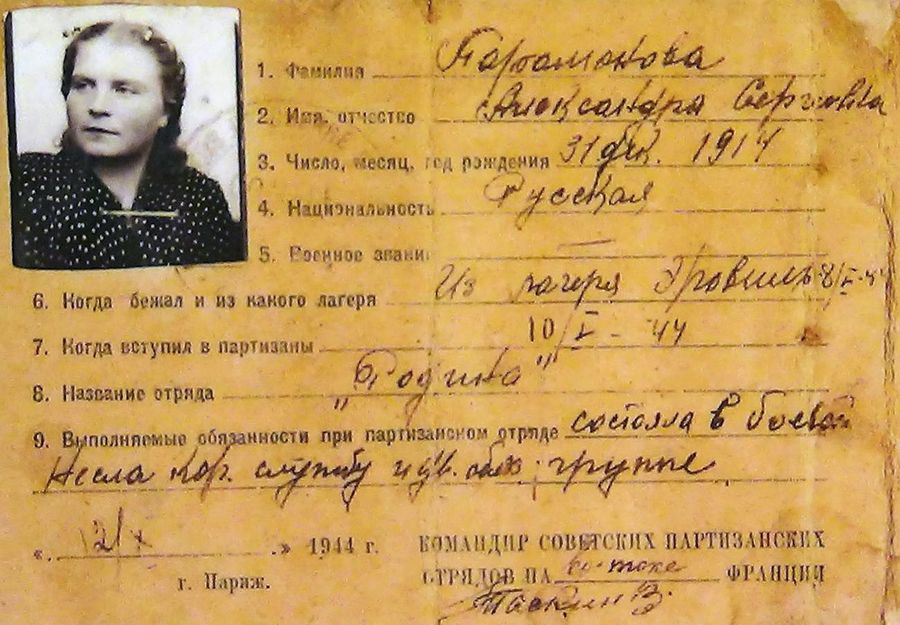 1. Фамилия Парамонова
2. Имя, отчество Александра Сергеевна
3. Число, месяц, год рождения 31 дек. 1914
4. Национальность Русская
5. Военное звани —
6. Когда бежал и из какого лагеря Из лагеря Эрувиль 8/I-44
7. Когда вступил в партизаны 10/I - 44
8. Название отряда "Родина"
9. Выполняемые обязанности при партизанском отряде состояла в боевой
Несла кар. службу группе
«. 12/X .» 1944 г. КОМАНДИР СОВЕТСКИХ ПАРТИЗАНСКИХ
г. Париж. ОТРЯДОВ НА во-токе ФРАНЦИИ
Таскин В.